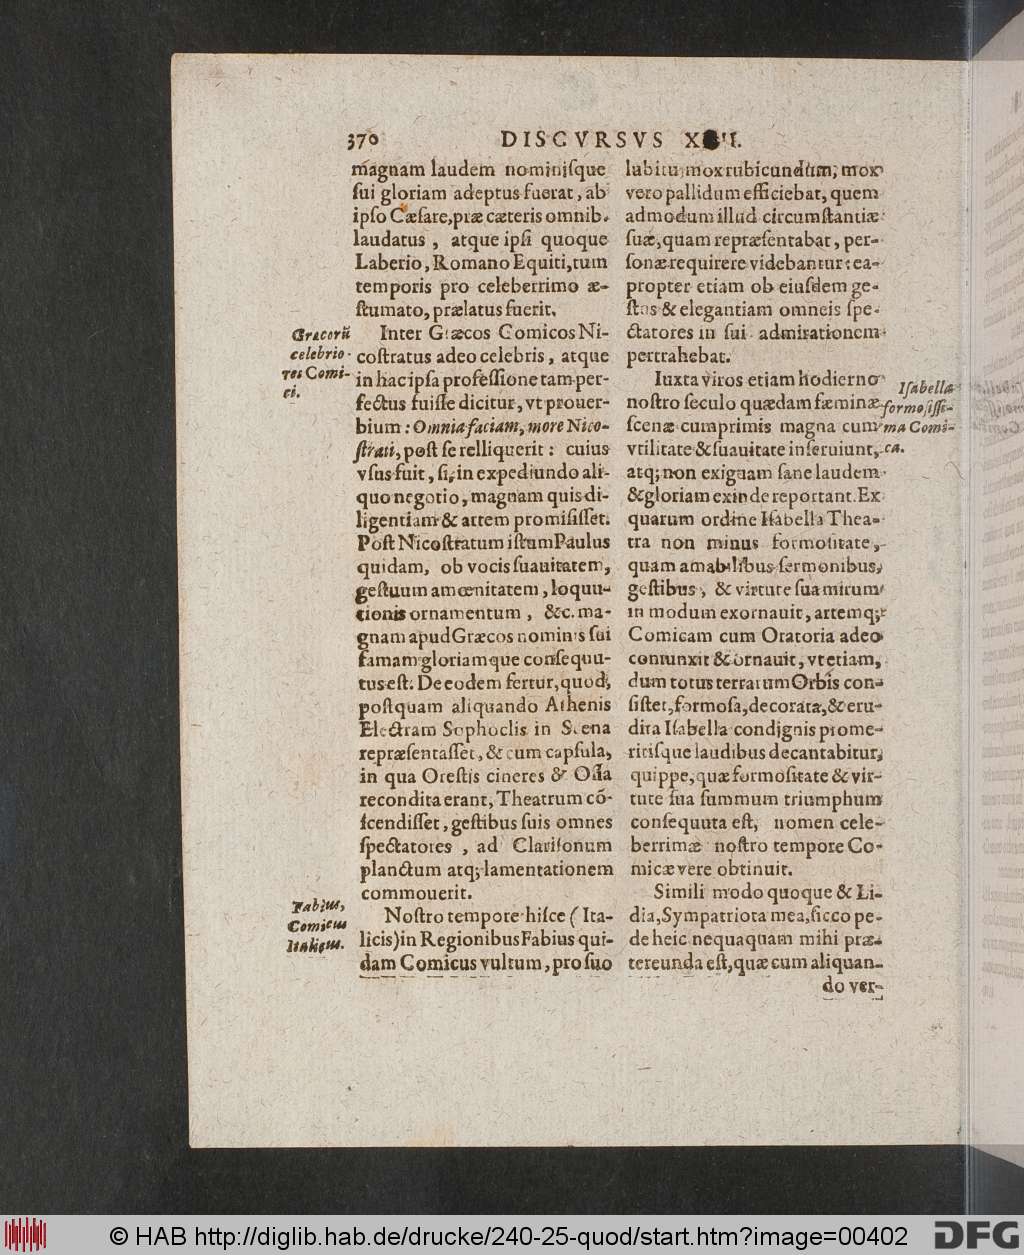 370 DISCVRSVS
magnam laudem nominiſque
ſui gloriam adeptus fuerat, ab
ipſo Cæſare, præ cæteris omnib.
laudatus, atque ipſi quoque
Laberio, Romano Equiti, tum
temporis pro celeberrimo æ-
ſtumato, prælatus fuerit.
Græcorũ
celebrio-
res Comi-
ci.
Inter Græcos Comicos Ni-
coſtratus adeo celebris, atque
in hac ipſa profeſſione tam per-
fectus fuiſſe dicitur, vt prouer-
bium: Omnia faciam, more Nico-
ſtrati, poſt ſe relliquerit: cuius
vſus fuit, ſi, in expediundo ali-
quo negotio, magnam quis di-
ligentiam & artem promiſiſſet.
Poſt Nicoſtratum iſtum Paulus
quidam, ob vocis ſuauitatem,
geſtuum amœnitatem, loquu-
tionis ornamentum, &c. ma-
gnam apud Græcos nominis ſui
famam gloriamque conſequu-
tus eſt. De eodem fertur, quod,
poſtquam aliquando Athenis
Electram Sophoclis in Scena
repræſentaſſet, & cum capſula,
in qua Oreſtis cineres & Oſſa
recondita erant, Theatrum cõ-
ſcendiſſet, geſtibus ſuis omnes
ſpectatores, ad Clariſonum
planctum atq; lamentationem
commouerit.
Fabius,
Comicus
Italicus.
Noſtro tempore hiſce (Ita-
licis) in Regionibus Fabius qui-
dam Comicus vultum, pro ſuo
lubitu, mox rubicundum, mox
vero pallidum efficiebat, quem
admodum illud circumſtantiæ
ſuæ, quam repræſentabat, per-
ſonæ requirere videbantur: ea-
propter etiam ob eiuſdem ge-
ſtus & elegantiam omneis ſpe-
ctatores in ſui admirationem
pertrahebat.
Iuxta viros etiam hodierno
noſtro ſeculo quædam fæminæ
ſcenæ cumprimis magna cum
vtilitate & ſuauitate inſeruiunt,
atq; non exiguam ſane laudem
& gloriam exinde reportant. Ex
quarum ordine Iſabella Thea-
tra non minus formoſitate,
quam amabilibus ſermonibus,
geſtibus, & virtute ſua mirum
in modum exornauit, artemq;
Comicam cum Oratoria adeo
coniunxit & ornauit, vt etiam,
dum totus terrarum Orbis con-
ſiſtet, formoſa, decorata, & eru-
dita Iſabella condignis prome-
ritiſque laudibus decantabitur,
quippe, quæ formoſitate & vir-
tute ſua ſummum triumphum
conſequuta eſt, nomen cele-
berrimæ noſtro tempore Co-
micæ vere obtinuit.
Iſabella
formoſiſſi-
ma Comi-
ca.
Simili modo quoque & Li-
dia, Sympatriota mea, ſicco pe-
de heic nequaquam mihi præ-
tereunda eſt, quæ cum aliquan-
do ver-
© HAB http://diglib.hab.de/drucke/240-25-quod/start.htm?image=00402
DFG